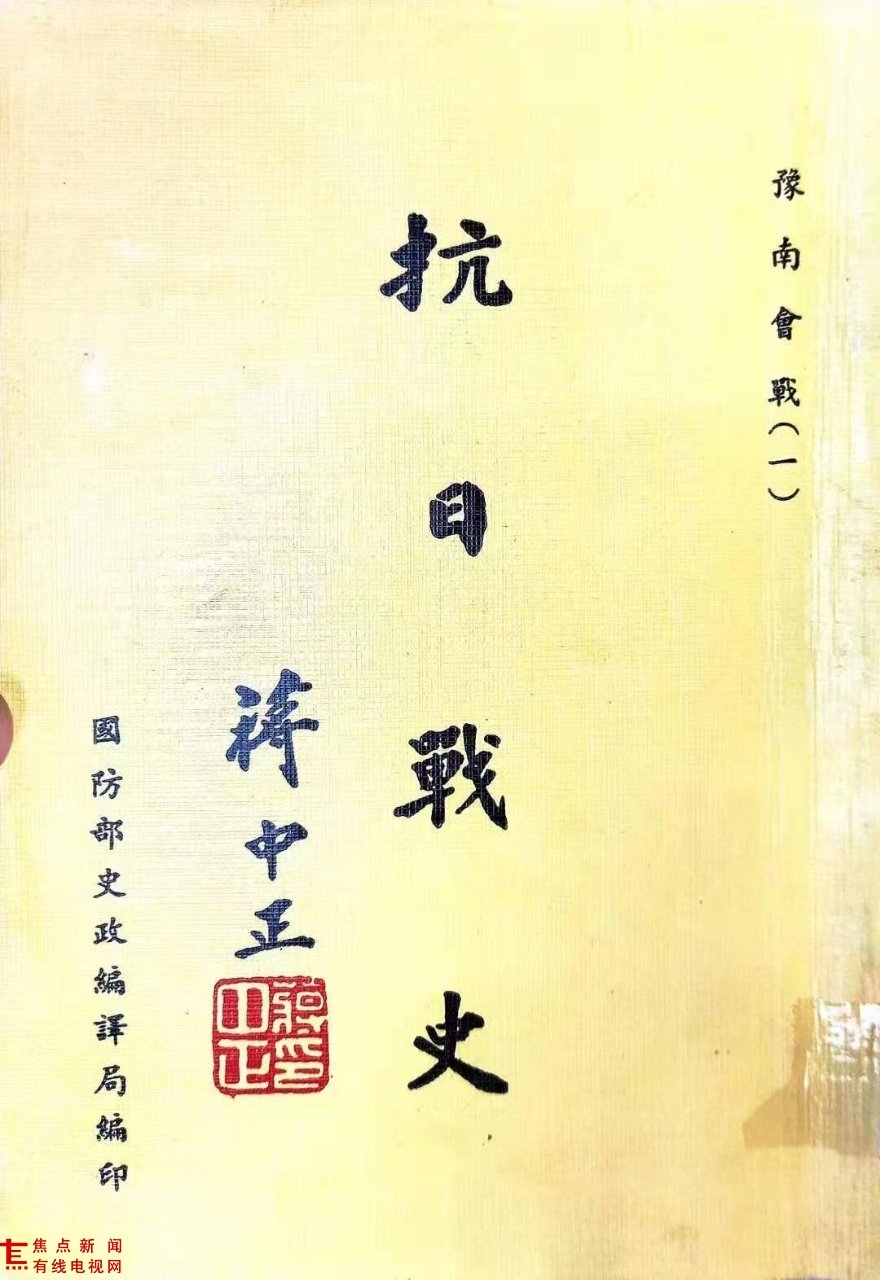 豫南會戰(一)
抗日戰史
蔣中正
蔣中正印
國防部史政編譯局編印
焦点新闻
有线电视网